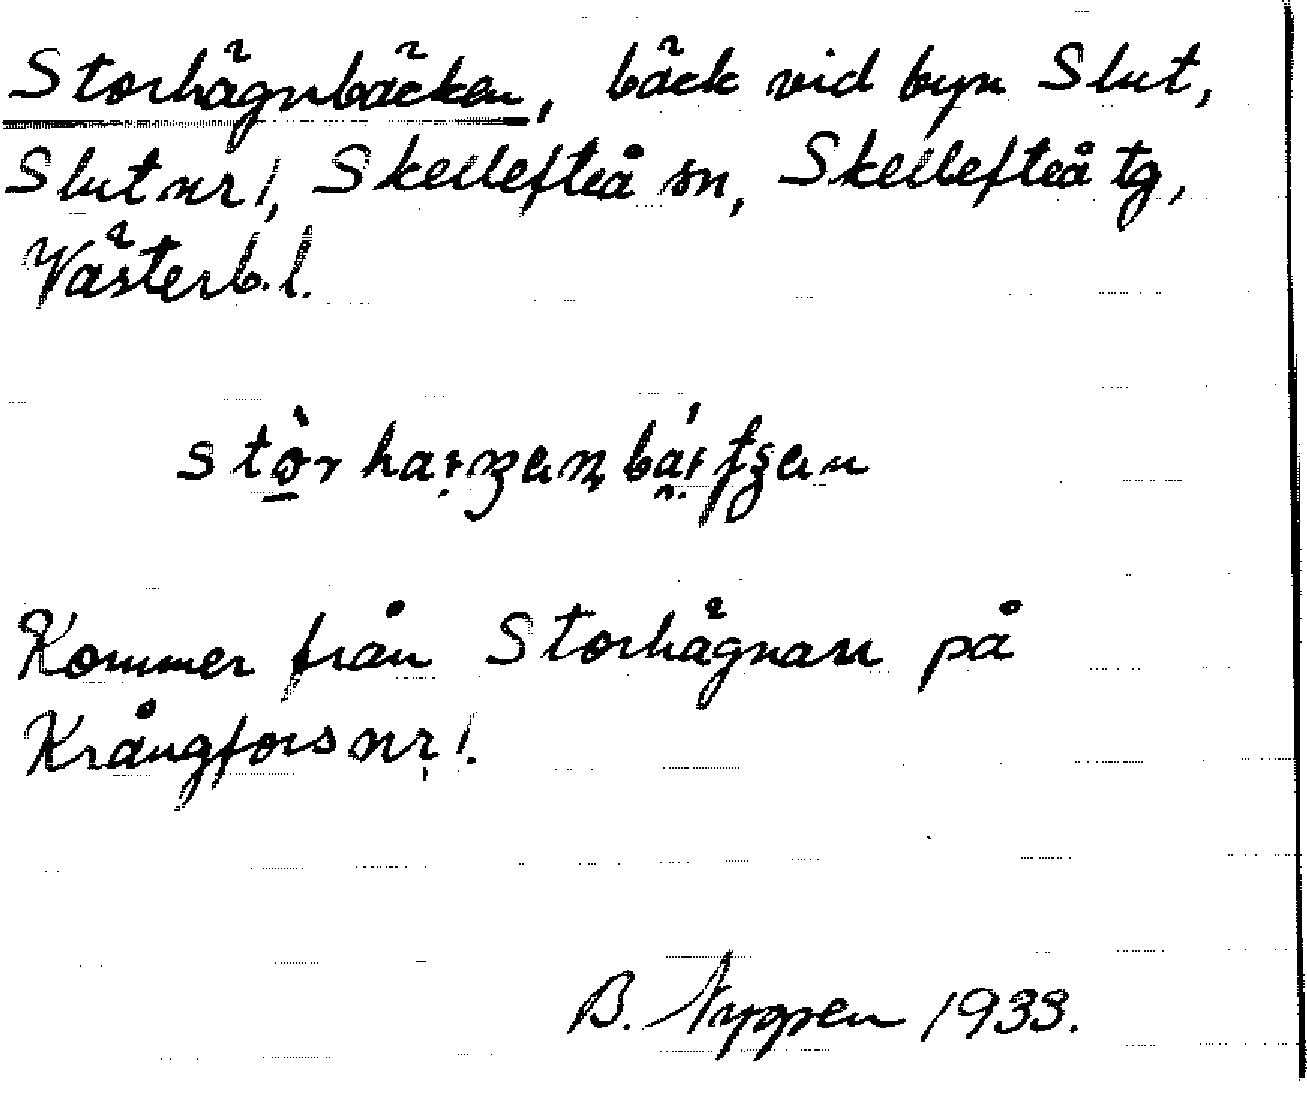 Storhägnbäcken, bäck vid byn Slut,
Slut nr 1, Skellefteå sn, Skellefteå tg,
Västerb. l.
Kommer från Storhägnan på
Krångfors nr 1.
B. Nygren 1933.